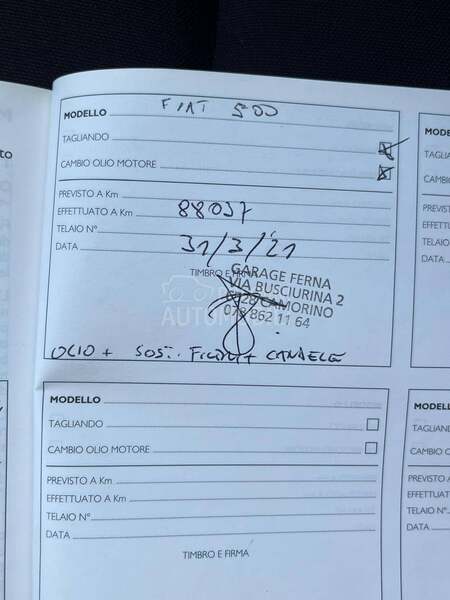 MODELLO FIAT 500
TAGLIANDO
CAMBIO OLIO MOTORE
PREVISTO A Km
EFFETTUATO A Km 88037
TELAIO N°
DATA 31/3/21
TIMBRO E FIRMA
GARAGE FERNA
VIA BUSCIURINA 2
6528 CAMORINO
078 862 11 64
OLIO + SOST. FILTRI + CANDELE
MODELLO
TAGLIANDO
CAMBIO OLIO MOTORE
PREVISTO A Km
EFFETTUATO A Km
TELAIO N°
DATA
TIMBRO E FIRMA
to
MODE
TAGLIA
CAMBIO
PREVISTO
EFFETTU
TELAIO
DATA
MODELL
TAGLIAND
CAMBIO O
PREVISTO A
EFFETTUATO
TELAIO N°
DATA